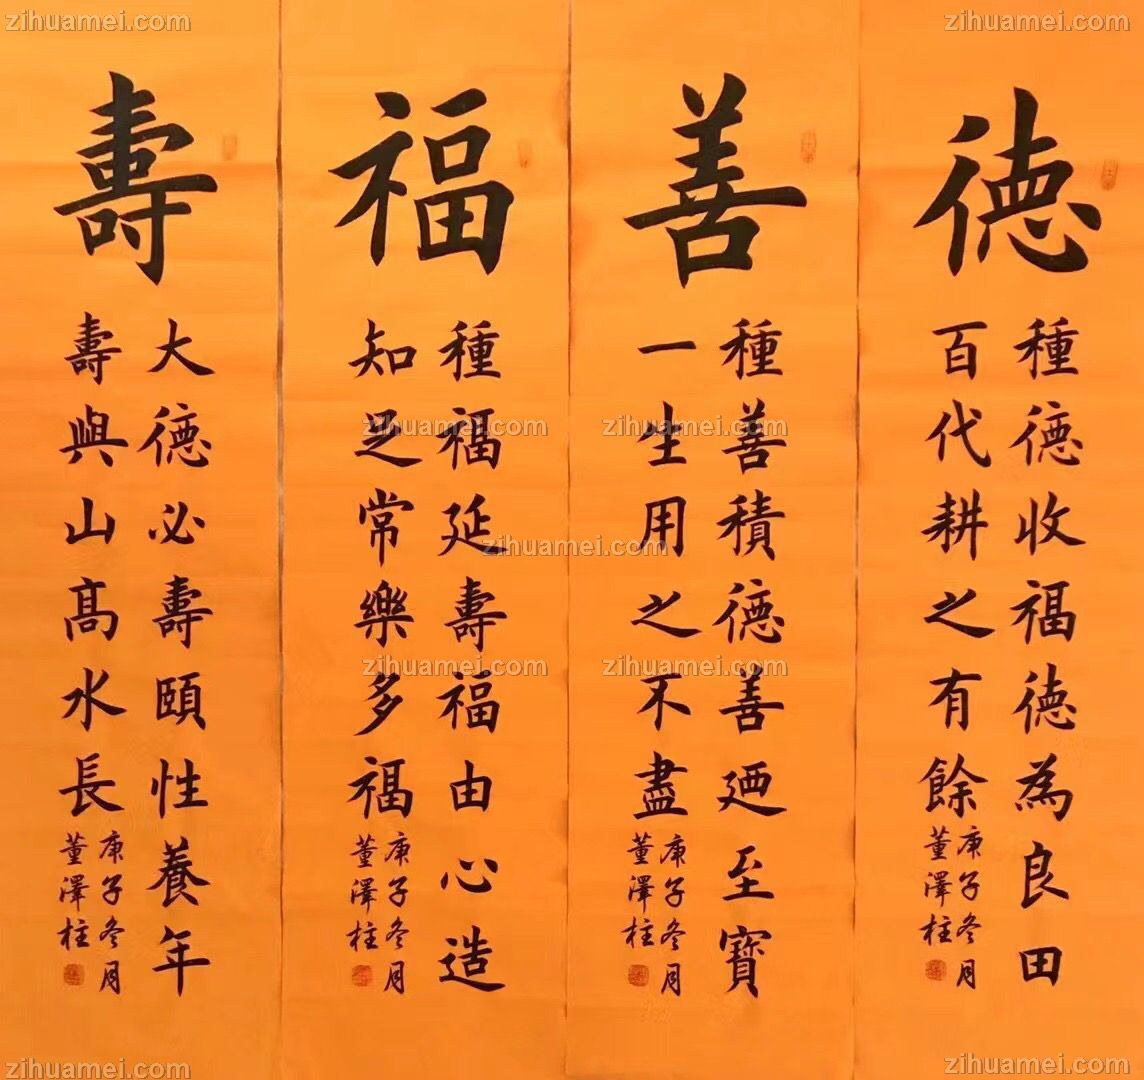 德
種德收福德為良田
百代耕之有餘
庚子冬月
董澤柱
善
種善積德善廼至寶
一生用之不盡
庚子冬月
董澤柱
福
種福延壽福由心造
知足常樂多福
庚子冬月
董澤柱
壽
大德必壽頤性養年
壽與山高水長
庚子冬月
董澤柱
zihuamei.com
zihuamei.com
zihuamei.com
zihuamei.com
zihuamei.com
zihuamei.com
zihuamei.com
zihuamei.com
zihuamei.com